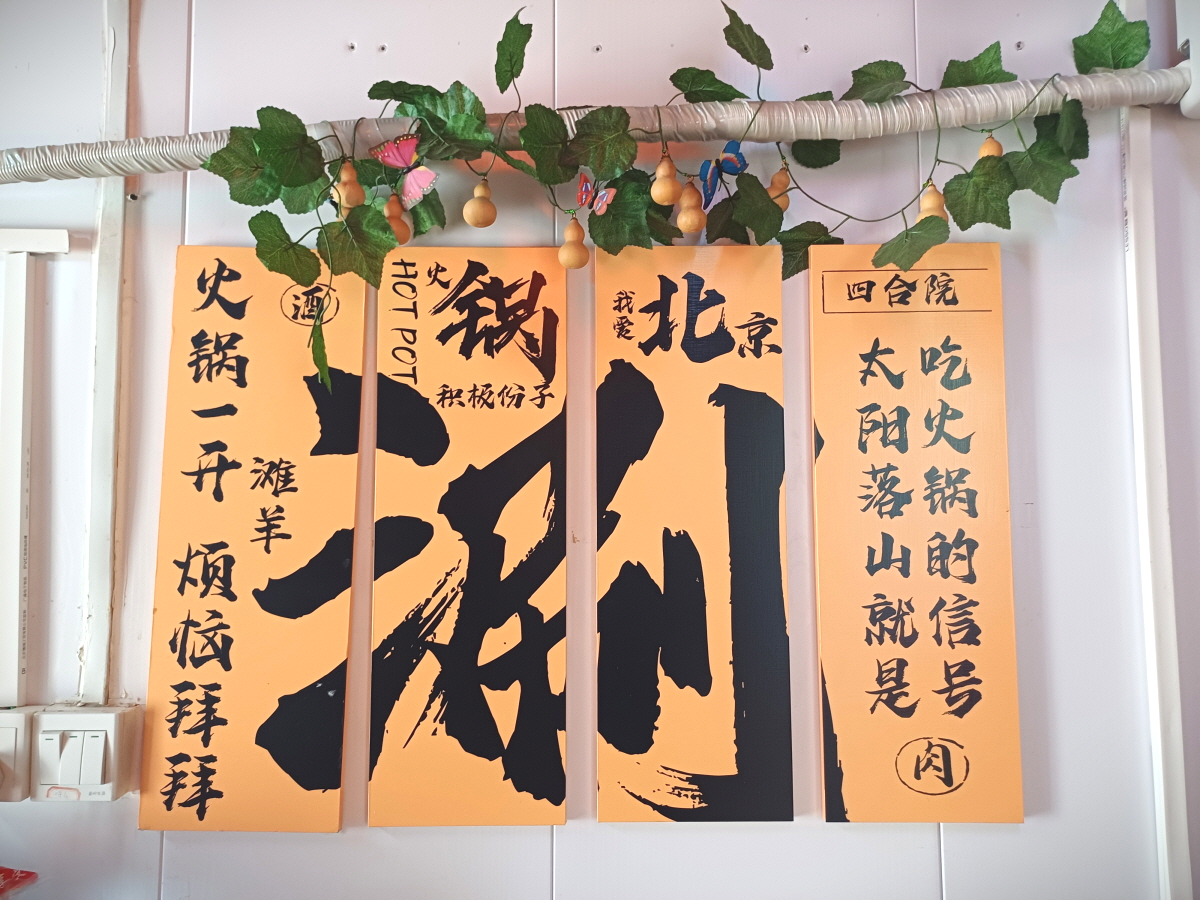 火锅一开 烦恼拜拜
滩羊
酒
HOT POT
火锅
积极份子
涮
我爱
北京
四合院
太阳落山就是
吃火锅的信号
肉